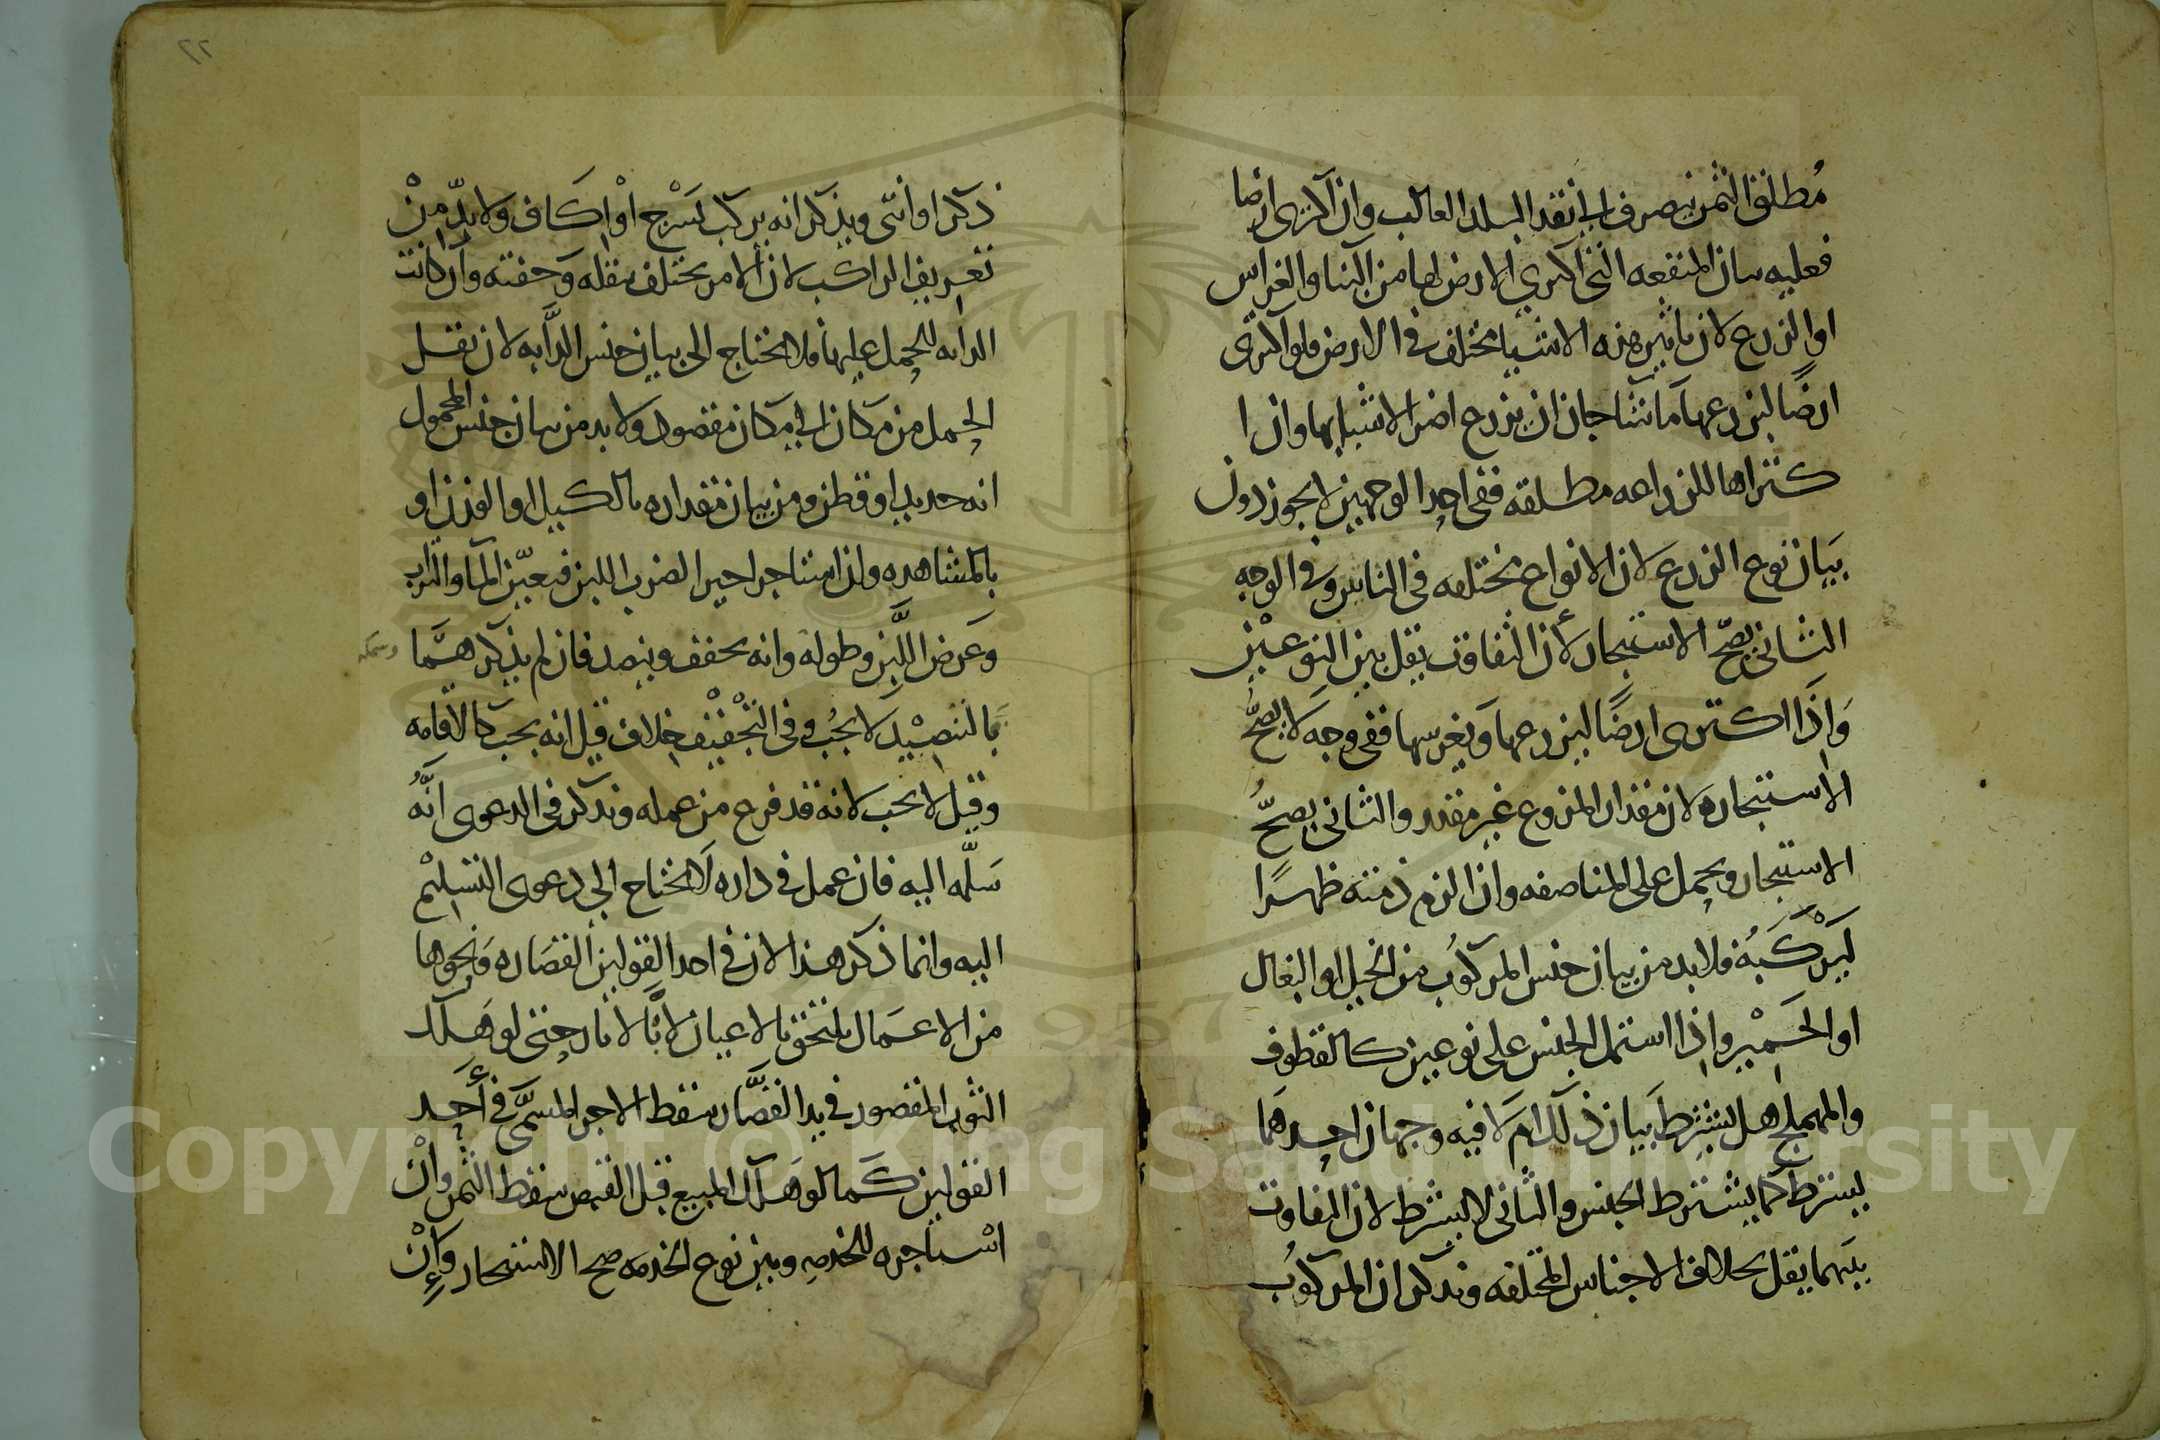 مُطلق الثمن ينصرف الى نقد البلد الغالب وان اكترى ارضا
فعليه بيان المنفعه التي اكترى الارض لها من البنا والغراس
او الزرع لان تاثير هذه الاشيا مختلف في الارض ولو اكترى
ارضًا ليزرعها ما شا جاز ان يزرع اضر الاشيا بها وان ا
كتراها للزراعه مطلقه ففي احد الوجهين لا يجوز دون
بيان نوع الزرع لان الانواع مختلفه في التاثير وفي الوجه
الثاني يصحّ الاستيجار لأن التفاوت يقل بين النوعين
وَاذا اكترى ارضًا ليزرعها وَيغرسها ففي وجه لا يصحُّ
الاستيجاره لان مقدار المزروع غير مقدر والثاني يصحُّ
الاستيجار ويحمل على المناصفه واذا الزم ذمته ظهرًا
ليَرْكَبَهُ فلا بد من بيان جنس المركوب من الخيل او البغال
او الحَمْير واذا اشتمل الجنس على نوعين كالقطوف
والمهملج هل يشترط بيان ذلك ام لا فيه وجهان احدهما
يشترط كما يشترط الجنس والثاني لا يشترط لان التفاوت
بينهما يقل بخلاف الاجناس المختلفه ويذكر ان المركوب
٢٢
ذكر او انثى ويذكر انه يركب بسَرْج اوْ اكَاف ولا بدّ مِنْ
تعريف الراكب لان الامر يختلف بثقله وَخفته وان كانت
الدابه للحمل عليها فلا يحتاج الى بيان جنس الدَّابه لان نقل
الحمل من مكان الى مكان مقصود ولا بد من بيان جنس المحمول
انه حديد او قطن ومن بيان مقداره بالكيل او الوزن او
بالمشاهده واذا استاجر اجيرا لضرب اللبن فيعيّن الما والتراب
وَعَرض اللَّبن وطوله وانه يجفف وينضد فان لم يذكرهمَا
وسمكه
فالتنضِيْد لا يجُب وفي التجْفيْف خلاف قيل انه يجب كالاقامه
وقيل لا يجب لانه قد فرغ من عمله ويذكر في الدعوى انَّهُ
سَلّمه اليه فان عمل في داره لا يحتاج الى دعوى التسليْم
اليه وانما ذكر هذا لان في احد القولين القصَاره وَنحوها
من الاعمَال يلتحق بالاعيان لا بالاثار حتى لو هَلك
الثوب المقصور في يد القصَّار سقط الاجر المسمَّى في أحَد
القولين كَما لو هَلك المبيع قبل القبض سقط الثمن وانْ
اسْتاجره للخدمه وبين نوع الخدمه صح الاستيجار وَاِنْ
Copyright © King Saud University
1957